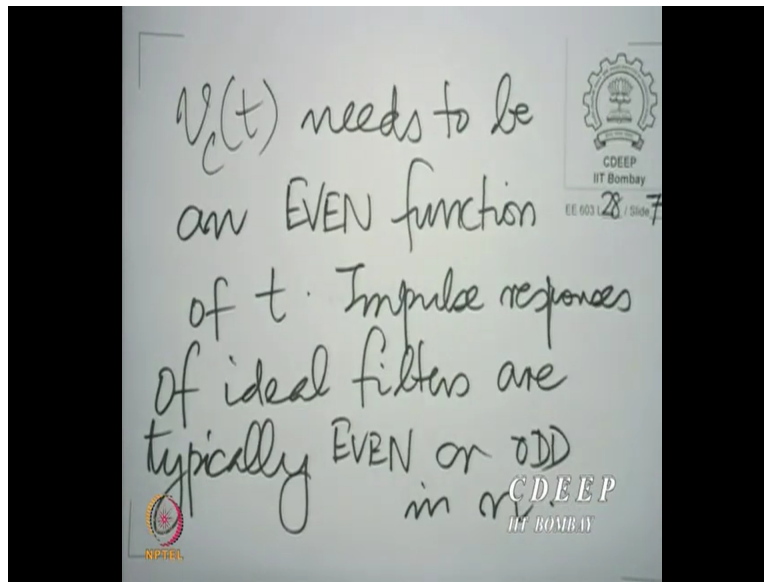 V_c(t) needs to be
an EVEN function
of t. Impulse responses
of ideal filters are
typically EVEN or ODD
in n.
CDEEP
IIT Bombay
EE 603 L 28 / Slide 7
CDEEP
IIT BOMBAY
NPTEL